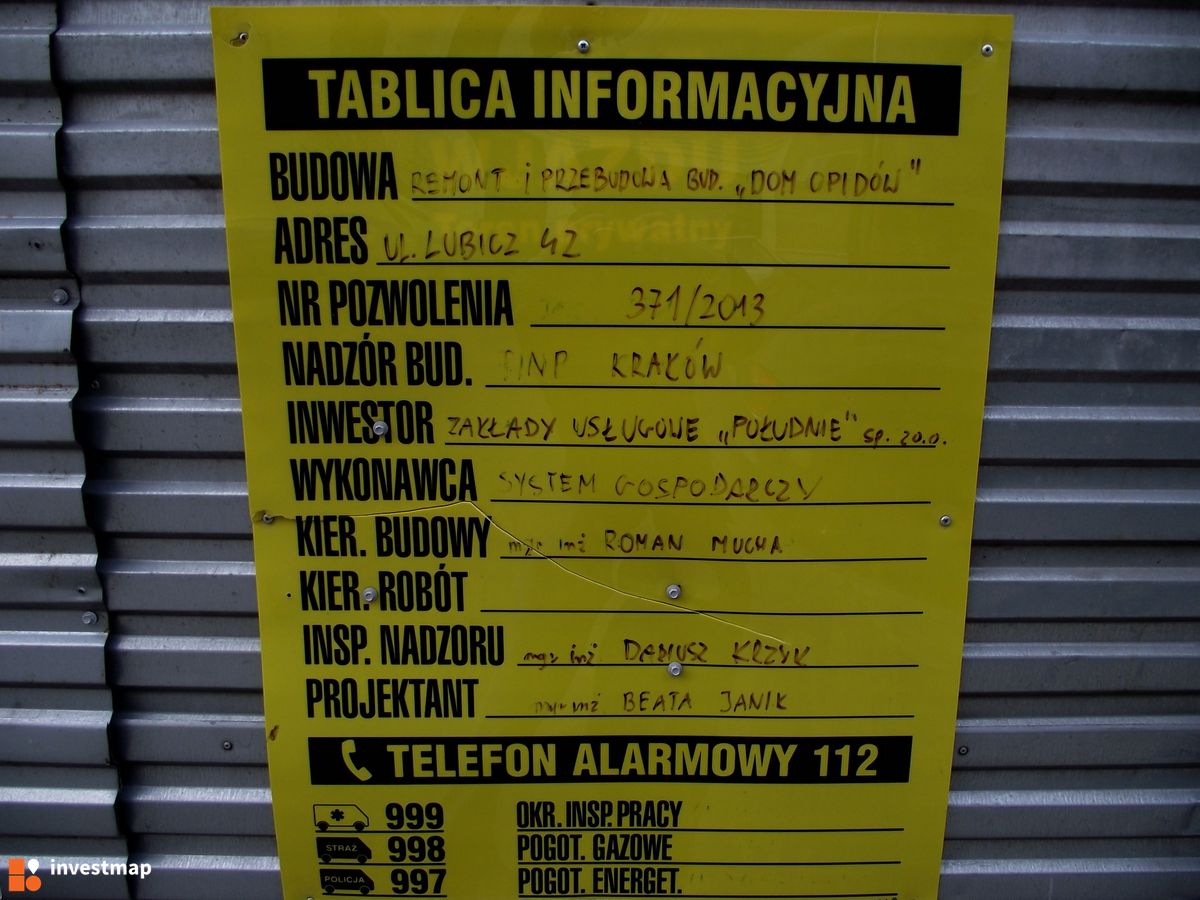 TABLICA INFORMACYJNA
BUDOWA REMONT i PRZEBUDOWA BUD. „DOM OPIDÓW"
ADRES UL. LUBICZ 42
NR POZWOLENIA 371/2013
NADZÓR BUD. PINP KRAKÓW
INWESTOR ZAKŁADY USŁUGOWE „POŁUDNIE" sp. zo.o.
WYKONAWCA SYSTEM GOSPODARCZY
KIER. BUDOWY mgr inż ROMAN MUCHA
KIER. ROBÓT
INSP. NADZORU mgr inż DARIUSZ KRZYK
PROJEKTANT mgr inż BEATA JANIK
TELEFON ALARMOWY 112
999 OKR. INSP. PRACY
STRAŻ 998 POGOT. GAZOWE
POLICJA 997 POGOT. ENERGET.
investmap